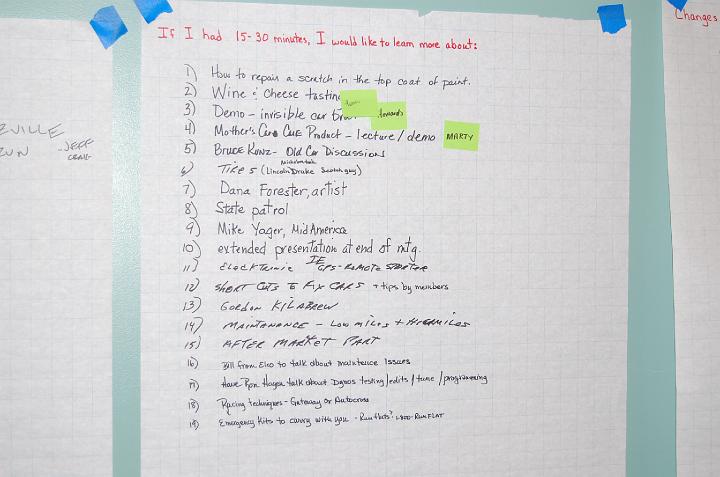 Changes
If I had 15-30 minutes, I would like to learn more about:
1) How to repair a scratch in the top coat of paint.
2) Wine & cheese tasting
3) Demo - invisible car towards
4) Mother's Care Product - lecture/demo MARTY
5) Bruce Kunz - Old Car Discussions
6) Tires (Lincoln Drake guy)
7) Dana Forester, artist
8) State patrol
9) Mike Yager, MidAmerica
10) extended presentation at end of mtg.
11) IE GPS - Remote Starter
12) Short Cuts to Fix Cars + tips by members
13) Gordon Kilabrew
14) Maintanance - Low miles + High miles
15) After Market Part
16) Bill from Elco to talk about maintence Issues
17) Have Ron Hagen talk about Dynos testing/edits/tune/programming
18) Racing techniques - Gateway or Autocross
19) Emergency Kits to carry with you - Run flats? 1-800-RUNFLAT
ZVILLE
ZUN - JEFF
CRAIG